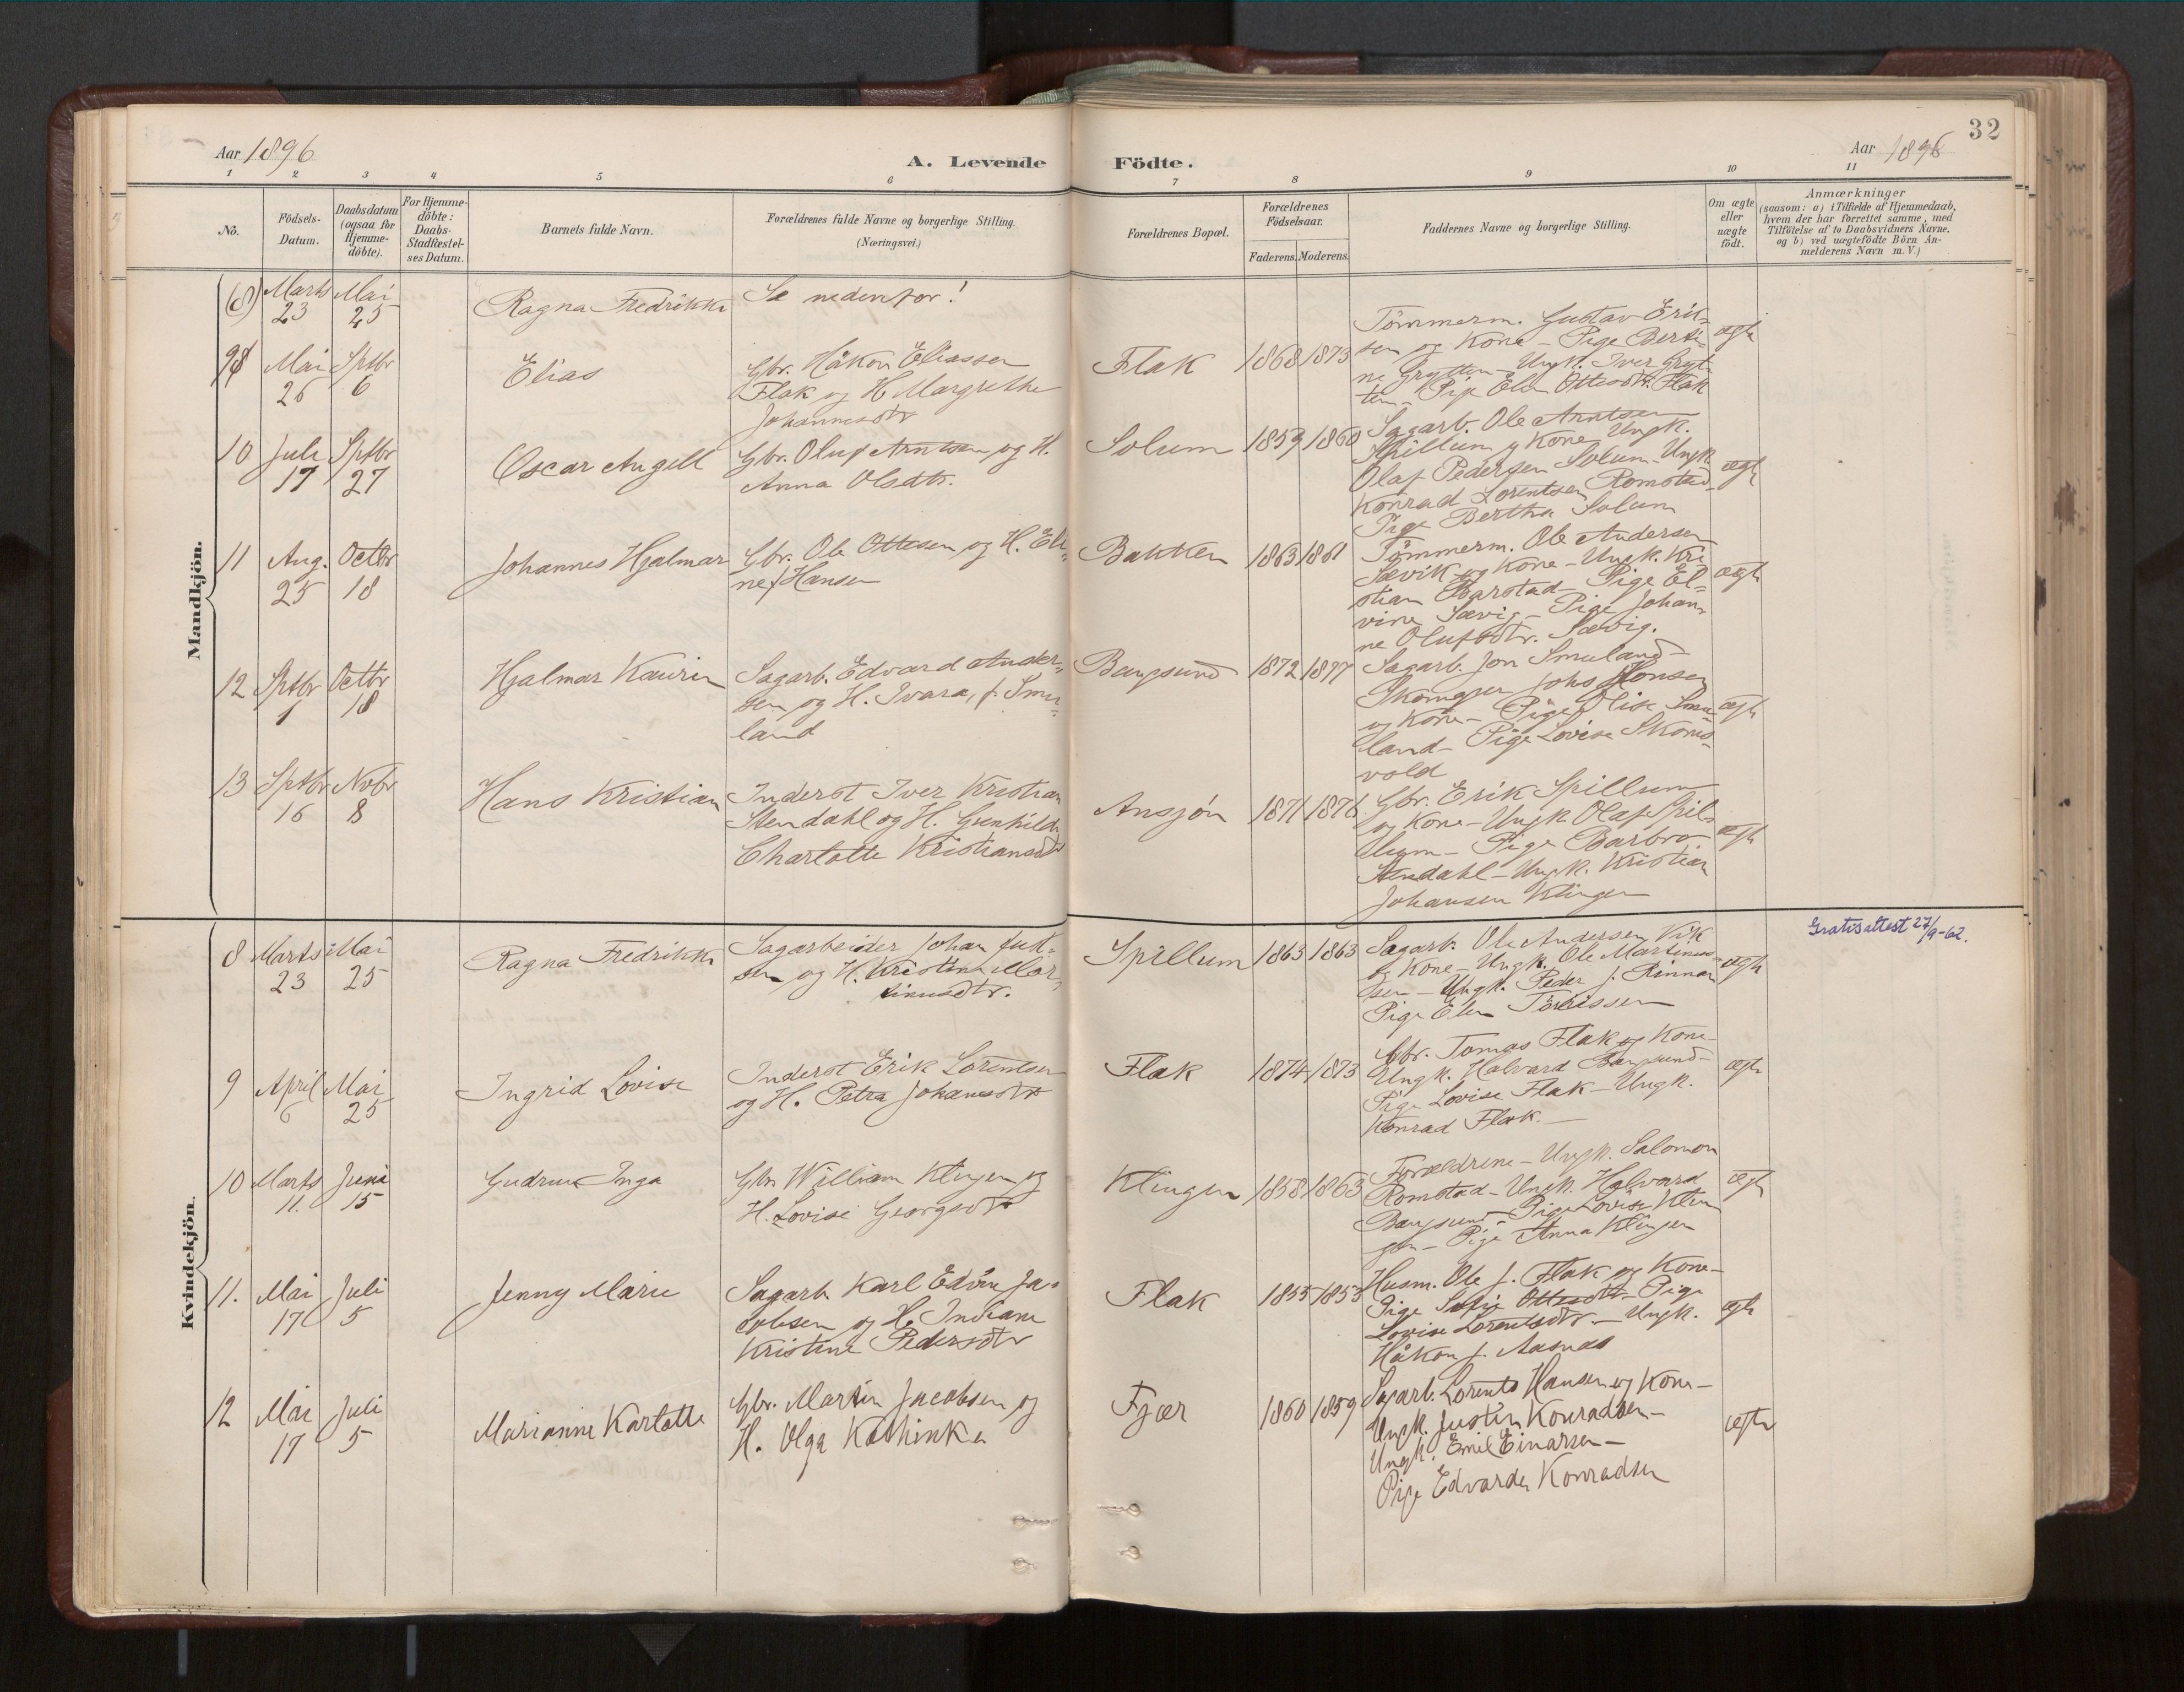 32
Aar 1896
A. Levende
Födte.
Aar 1896
1 2 3 4 5 6 7 8 9 10 11
No.
Födsels-
Datum.
Daabsdatum
(ogsaa for
Hjemme-
döbte).
For Hjemme-
döbte:
Daabs-
Stadfæstel-
ses Datum.
Barnets fulde Navn.
Forældrenes fulde Navne og borgerlige Stilling.
(Næringsvei.)
Forældrenes Bopæl.
Forældrenes
Födselsaar.
Faderens. Moderens.
Faddernes Navne og borgerlige Stilling.
Om ægte
eller
uægte
födt.
Anmærkninger
(saasom: a) i Tilfælde af Hjemmedaab,
hvem der har forrettet samme, med
Tilföielse af to Daabsvidners Navne.
og b) ved uægtefödte Börn An-
melderens Navn m. V.)
Mandkjön.
(8) Marts 23 Mai 25
Ragna Fredrikke
Se nedenfor!
9 Mai 26 Sptbr 6
Elias
Gbr. Håkon Eliassen
Flak og H Margrethe
Johannesdtr
Flak
1868 1873
Tömmerm. Gustav Erik-
sen og Kone - Pige Berti-
ne Grytten - Ungk. Iver Gryt-
ten - Pige Elen Ottesdtr. Flak
ægte
10 Juli 17 Sptbr 27
Oscar Angell
Gbr. Oluf Arntsen og H.
Anna Olsdtr.
Solum
1859 1860
Sagarb. Ole Arntsen
Spillum og Kone Ungk.
Olaf Pedersen Solum - Ungk
Konrad Lorentsen Romstad -
Pige Bertha Solum
ægte
11 Aug. 25 Octbr 18
Johannes Hjalmar
Gbr. Ole Ottesen og H. Eli-
ne f Hansen
Bakken
1863 1861
Tömmerm. Ole Andersen
Sævik og Kone - Ungk. Kri-
stian Barstad - Pige El-
vine Sævig - Pige Johan-
ne Olufsdtr. Sævig.
ægte
12 Sptbr 1 Octbr 18
Hjalmar Kaurin
Sagarb. Edvard Ander-
sen og H. Ivara, f. Smu-
land
Bangsund
1872 1877
Sagarb. Jon Smuland -
Johs Hansen
og Kone - Pige Olise Smu-
land - Pige Lovise Skoms-
vold
ægte
13 Sptbr 16 Novbr 8
Hans Kristian
Inderst Iver Kristian
Stendahl og H. Gunhild
Charlotte Kristiansdtr
Ansjön
1871 1876
Gbr. Erik Spillum
og Kone - Ungk Olaf Spil-
lum - Pige Barbro
Stendahl - Ungk. Kristian
Johansen Klingen
ægte
Kvindekjön.
8 Marts 23 Mai 25
Ragna Fredrikke
Sagarbeider Johan
sen og H. Kristine Mar-
tinusdtr.
Spillum
1863 1863
Sagarb. Ole Andersen Vik
og Kone - Ungk. Ole Martinus-
sen - Ungk. Peder J. Rinnan
Pige Elen Törrissen
ægte
Gratisattest 27/9-62.
9 April 6 Mai 25
Ingrid Lovise
Inderst Erik Lorentsen
og H. Petra Johansdtr
Flak
1874 1873
Gbr. Tomas Flak og Kone -
Ungk. Halvard Bangsund -
Pige Lovise Flak - Ungk.
Konrad Flak. -
ægte
10 Marts 11. Juni 15
Gudrun Inga
Gbr William Klingen og
H. Lovise Georgsdtr
Klingen
1858 1863
Forældrene - Ungk. Salomon
Romstad - Ungk. Halvard
Bangsund - Pige Lovise Klin
gen - Pige Anna Klingen
ægte
11. Mai 17 Juli 5
Jenny Marie
Sagarb. Karl Edvin Ja-
cobsen og H. Indiane
Kristine Pedersdtr
Flak
1855 1853
Husm. Ole J. Flak og Kone -
Pige Sofie Ottesdtr - Pige
Lovise Lorentsdtr. - Ungk.
Håkon J. Aasnæs
ægte
12 Mai 17 Juli 5
Marianne Karlotte
Gbr. Martin Jacobsen og
H. Olga Kathinka
Fjær
1860 1859
Sagarb. Lorents Hansen og Kone -
Ungk. Justin Konradsen -
Ungk. Emil Einarsen -
Pige Edvarda Konradsen
ægte